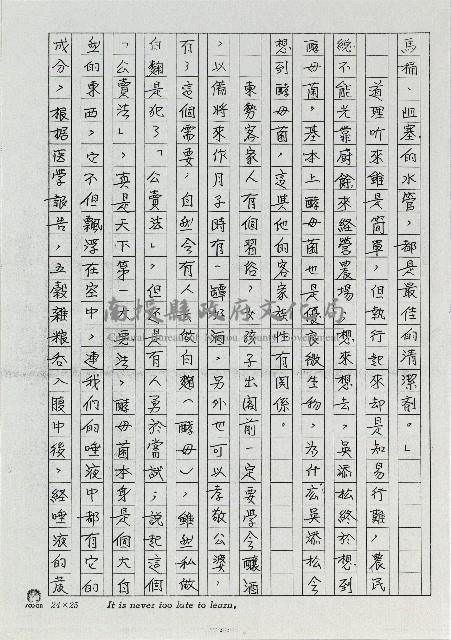 馬桶、阻塞的水管，都是最佳的清潔劑。」
道理听來雖是簡單，但執行起來却是知易行難，農民
總不能光靠廚餘來經營農場，想來想去，吳添松終於想到
酵母菌。基本上酵母菌也是優良微生物，為什広吳添松会
想到酵母菌，這與他的客家族性有関係。
東勢客家人有個習俗，女孩子出閣前一定要學会釀酒
，以備將來作月子時有一罈好酒，另外也可以孝敬公婆，
有了這個需要，自然会有人去做白麴（酵母），雖然私做
白麴是犯了「公賣法」，但還是有人勇於嘗試；說起這個
「公賣法」，真是天下第一大要法，酵母菌本身是個大自
然的東西，它不但飄浮在空中，連我們的唾液中都有它的
成分，根据医学報告，五穀雜粮吞入腹中後，経唾液的茂
南投縣政府文化局
Cultural Bureau of Nantou County Government
24×25 It is never too late to learn.